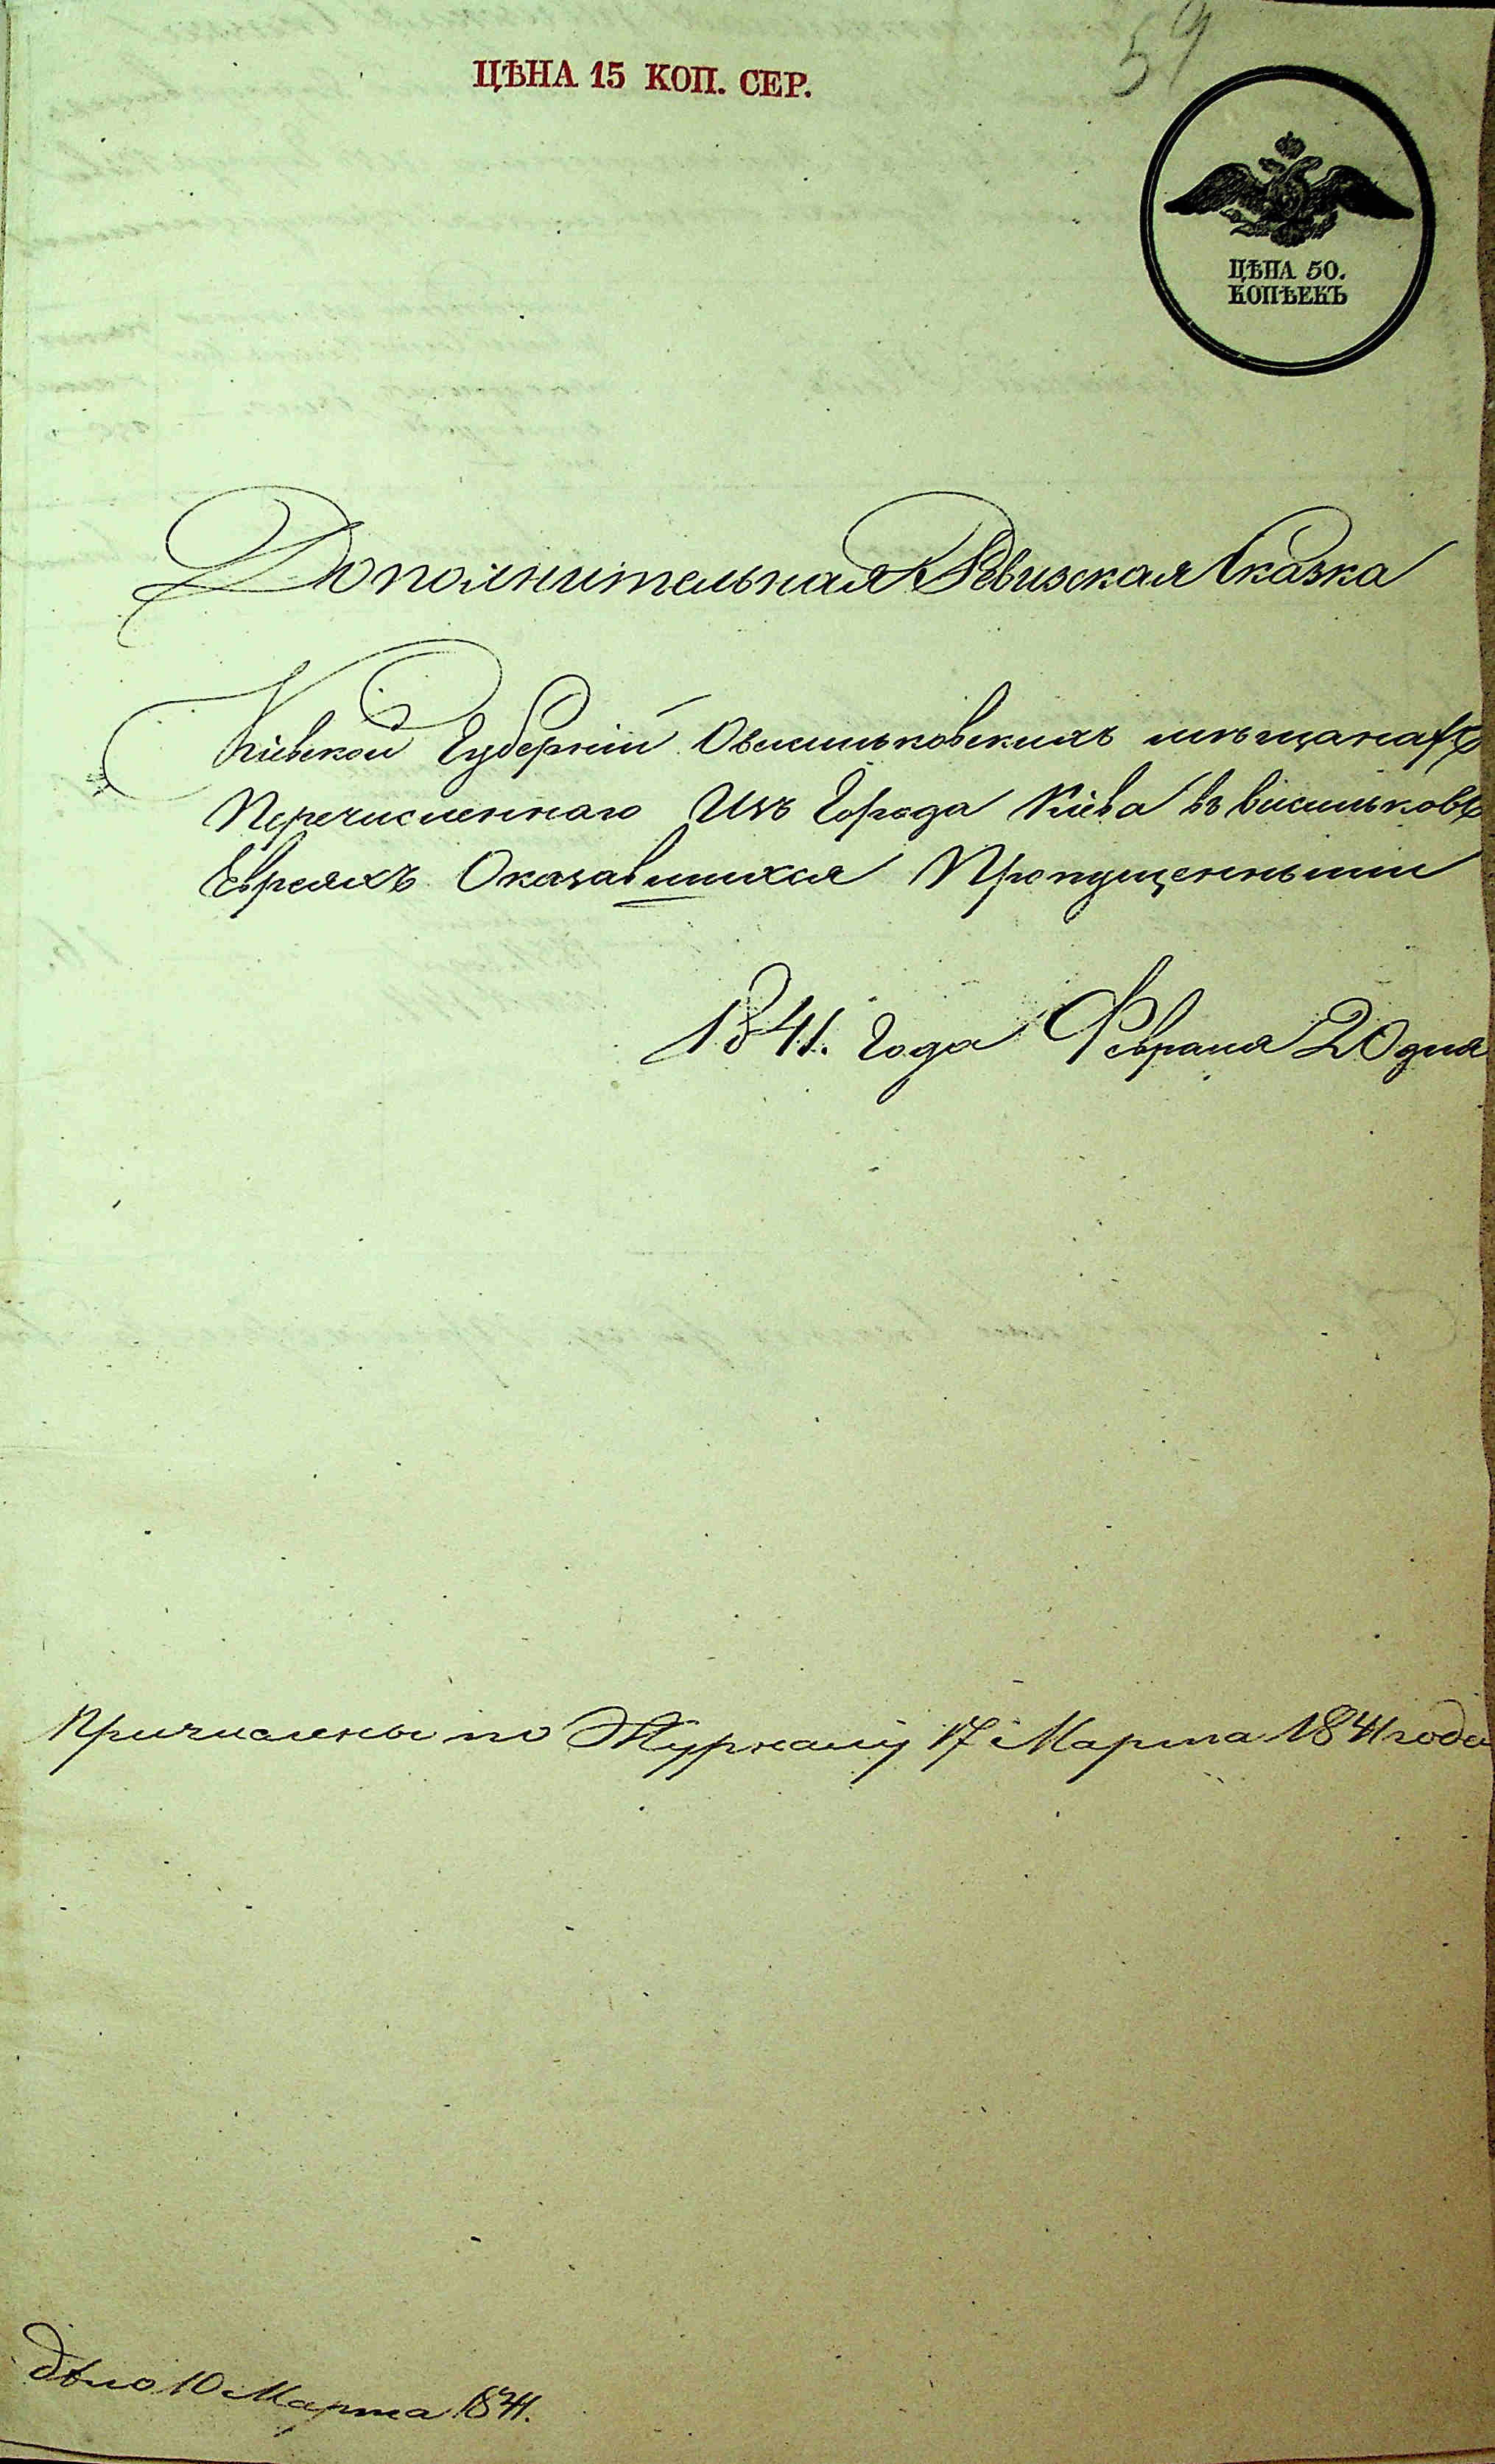 59
ЦѢНА 15 КОП. СЕР.
ЦѢНА 50.
КОПѢЕКЪ
Дополнительная Ревизская Сказка
Кіевской Губерніи Овасильковскихъ мѣщанахъ
Перечисленнаго Изъ Города Кіева въ васильковъ
Евреяхъ Оказавшихся Пропущенными
1841. Года Февраля 20 дня
Причислены по Журналу 17 Марта 1841 года
дѣло 10 Марта 1841.